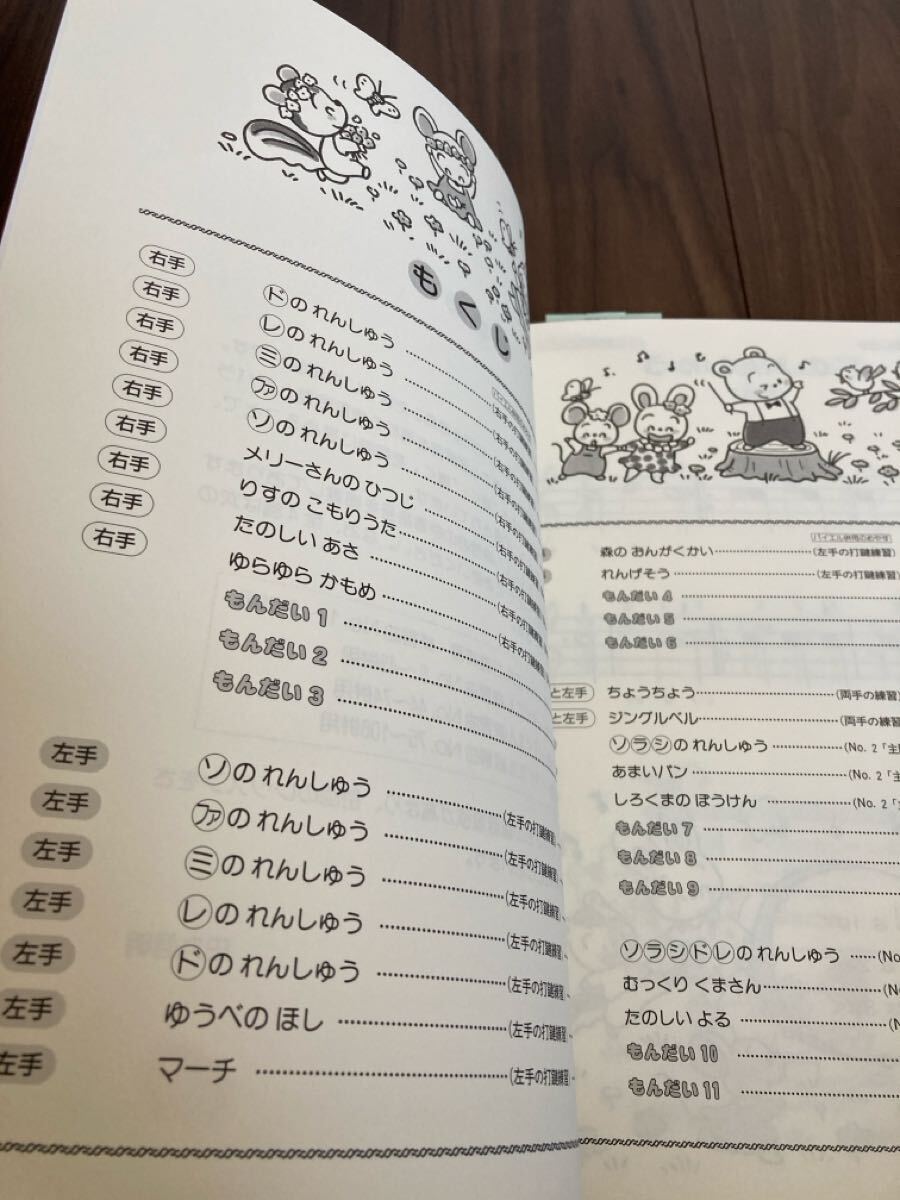 もくじ
バイエル併用のめやす
右手 ドの れんしゅう (右手の打鍵練習)
右手 レの れんしゅう (右手の打鍵練習)
右手 ミの れんしゅう (右手の打鍵練習)
右手 ファの れんしゅう (右手の打鍵練習)
右手 ソの れんしゅう (右手の打鍵練習)
右手 メリーさんの ひつじ (右手の打鍵練習)
右手 りすの こもりうた (右手の打鍵練習)
右手 たのしい あさ (右手の打鍵練習)
右手 ゆらゆら かもめ (右手の打鍵練習)
もんだい 1
もんだい 2
もんだい 3
左手 ソの れんしゅう (左手の打鍵練習)
左手 ファの れんしゅう (左手の打鍵練習)
左手 ミの れんしゅう (左手の打鍵練習)
左手 レの れんしゅう (左手の打鍵練習)
左手 ドの れんしゅう (左手の打鍵練習)
左手 ゆうべの ほし (左手の打鍵練習)
左手 マーチ (左手の打鍵練習)
バイエル併用のめやす
森の おんがくかい (左手の打鍵練習)
れんげそう (左手の打鍵練習)
もんだい 4
もんだい 5
もんだい 6
と左手 ちょうちょう (両手の練習)
と左手 ジングルベル (両手の練習
ソラシの れんしゅう (No. 2「主
あまいパン (No. 2「主
しろくまの ぼうけん (No. 2「
もんだい 7
もんだい 8
もんだい 9
ソラシドレの れんしゅう (No.
むっくり くまさん (N
たのしい よる (N
もんだい 10
もんだい 11